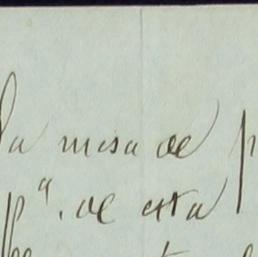 la mesa de
pª. de esta